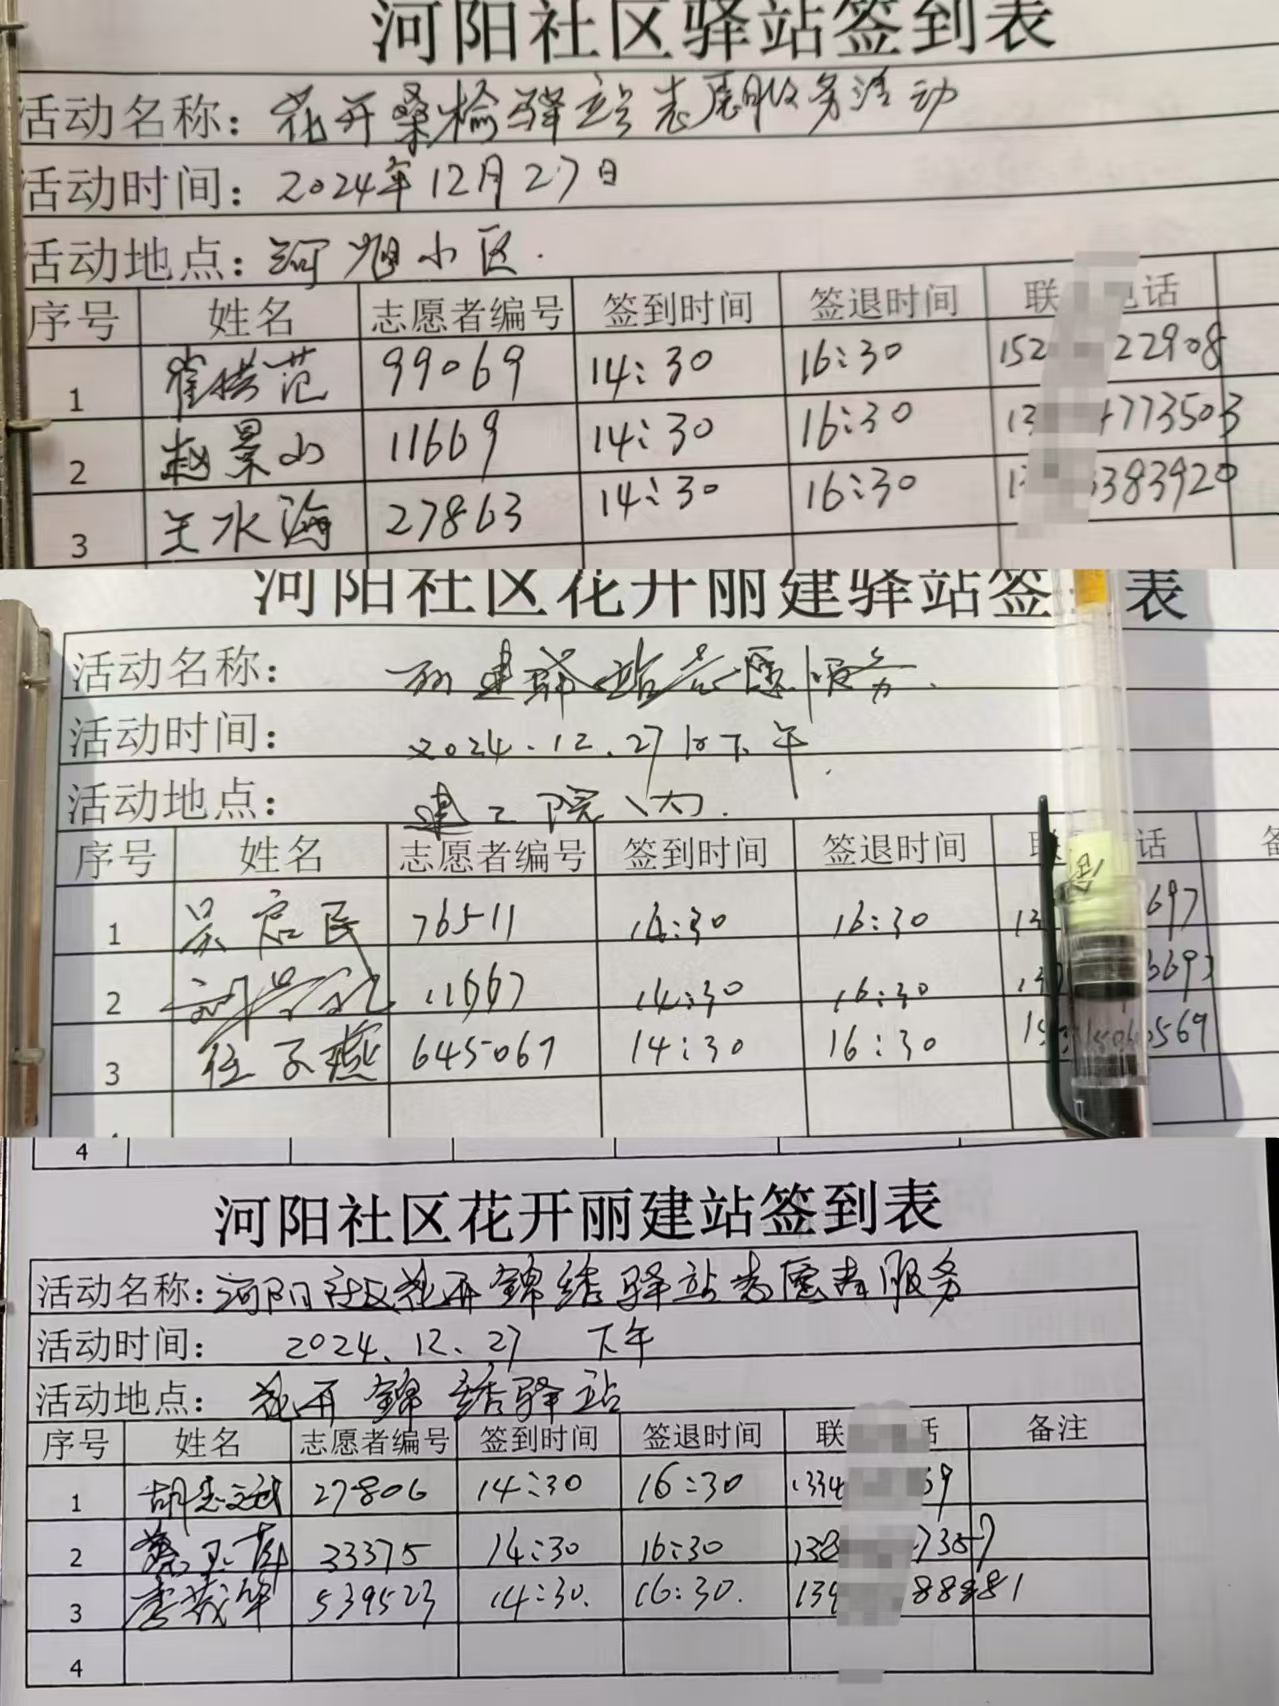 河阳社区驿站签到表
活动名称：花开桑榆驿站志愿服务活动
活动时间：2024年12月27日
活动地点：河旭小区.
序号 姓名 志愿者编号 签到时间 签退时间 联 电话
1 99069 14:30 16:30 152 22908
2 赵景山 11669 14:30 16:30 13 4773503
3 王水海 27863 14:30 16:30 1 383920
河阳社区花开丽建驿站签 表
活动名称： 丽建驿站志愿服务.
活动时间： 2024.12.27 下午.
活动地点： 建工院（内）.
序号 姓名 志愿者编号 签到时间 签退时间 联 话
1 吴启民 76511 16:30 16:30 13 697
2 11667 14:30 16:30 13 6693
3 任子燕 645067 14:30 16:30 15 569
4
河阳社区花开丽建站签到表
活动名称：河阳社区花开锦绣驿站志愿者服务
活动时间： 2024.12.27 下午
活动地点： 花开锦绣驿站
序号 姓名 志愿者编号 签到时间 签退时间 联 话 备注
1 胡志斌 27806 14:30 16:30 1334 69
2 33375 14:30 16:30 138 7357
3 李茂华 539523 14:30. 16:30. 139 88881
4